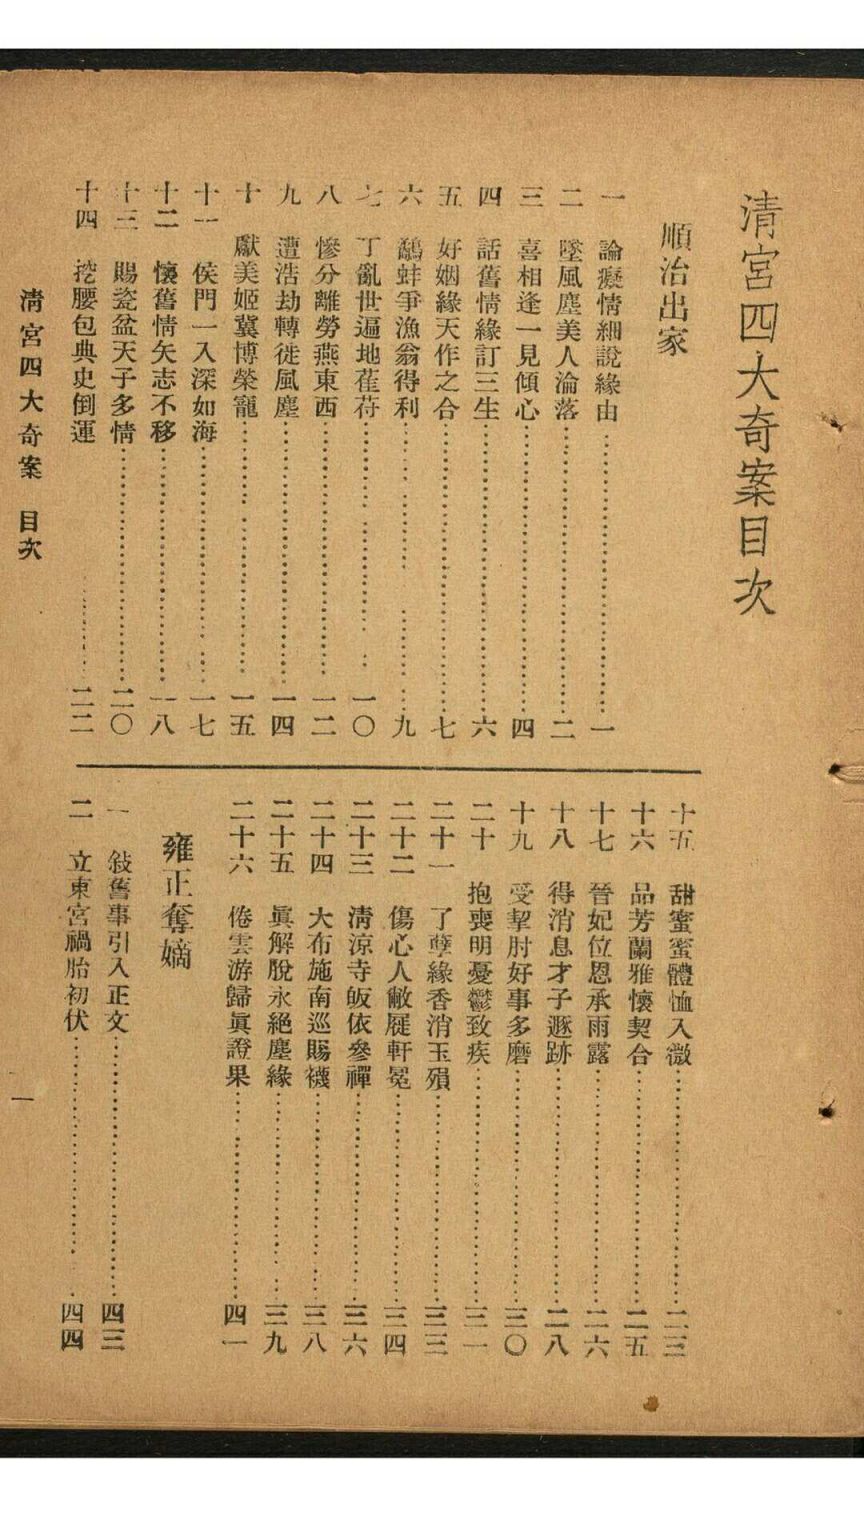 清宮四大奇案目次
順治出家
一 論癡情細說緣由…………一
二 墜風塵美人淪落…………二
三 喜相逢一見傾心…………四
四 話舊情緣訂三生…………六
五 好姻緣天作之合…………七
六 鷸蚌爭漁翁得利…………九
七 丁亂世遍地萑苻…………一〇
八 慘分離勞燕東西…………一二
九 遭浩劫轉徙風塵…………一四
十 獻美姬冀博榮寵…………一五
十一 侯門一入深如海…………一七
十二 懷舊情矢志不移…………一八
十三 賜瓷盆天子多情…………二〇
十四 挖腰包典史倒運…………二二
十五 甜蜜蜜體恤入微…………二三
十六 品芳蘭雅懷契合…………二五
十七 晉妃位恩承雨露…………二六
十八 得消息才子遯跡…………二八
十九 受掣肘好事多磨…………三〇
二十 抱喪明憂鬱致疾…………三一
二十一 了孽緣香消玉殞…………三三
二十二 傷心人敝屣軒冕…………三四
二十三 清涼寺皈依參禪…………三六
二十四 大布施南巡賜襪…………三八
二十五 眞解脫永絕塵緣…………三九
二十六 倦雲游歸眞證果…………四一
雍正奪嫡
一 敍舊事引入正文…………四三
二 立東宮禍胎初伏…………四四
清宮四大奇案 目次
一